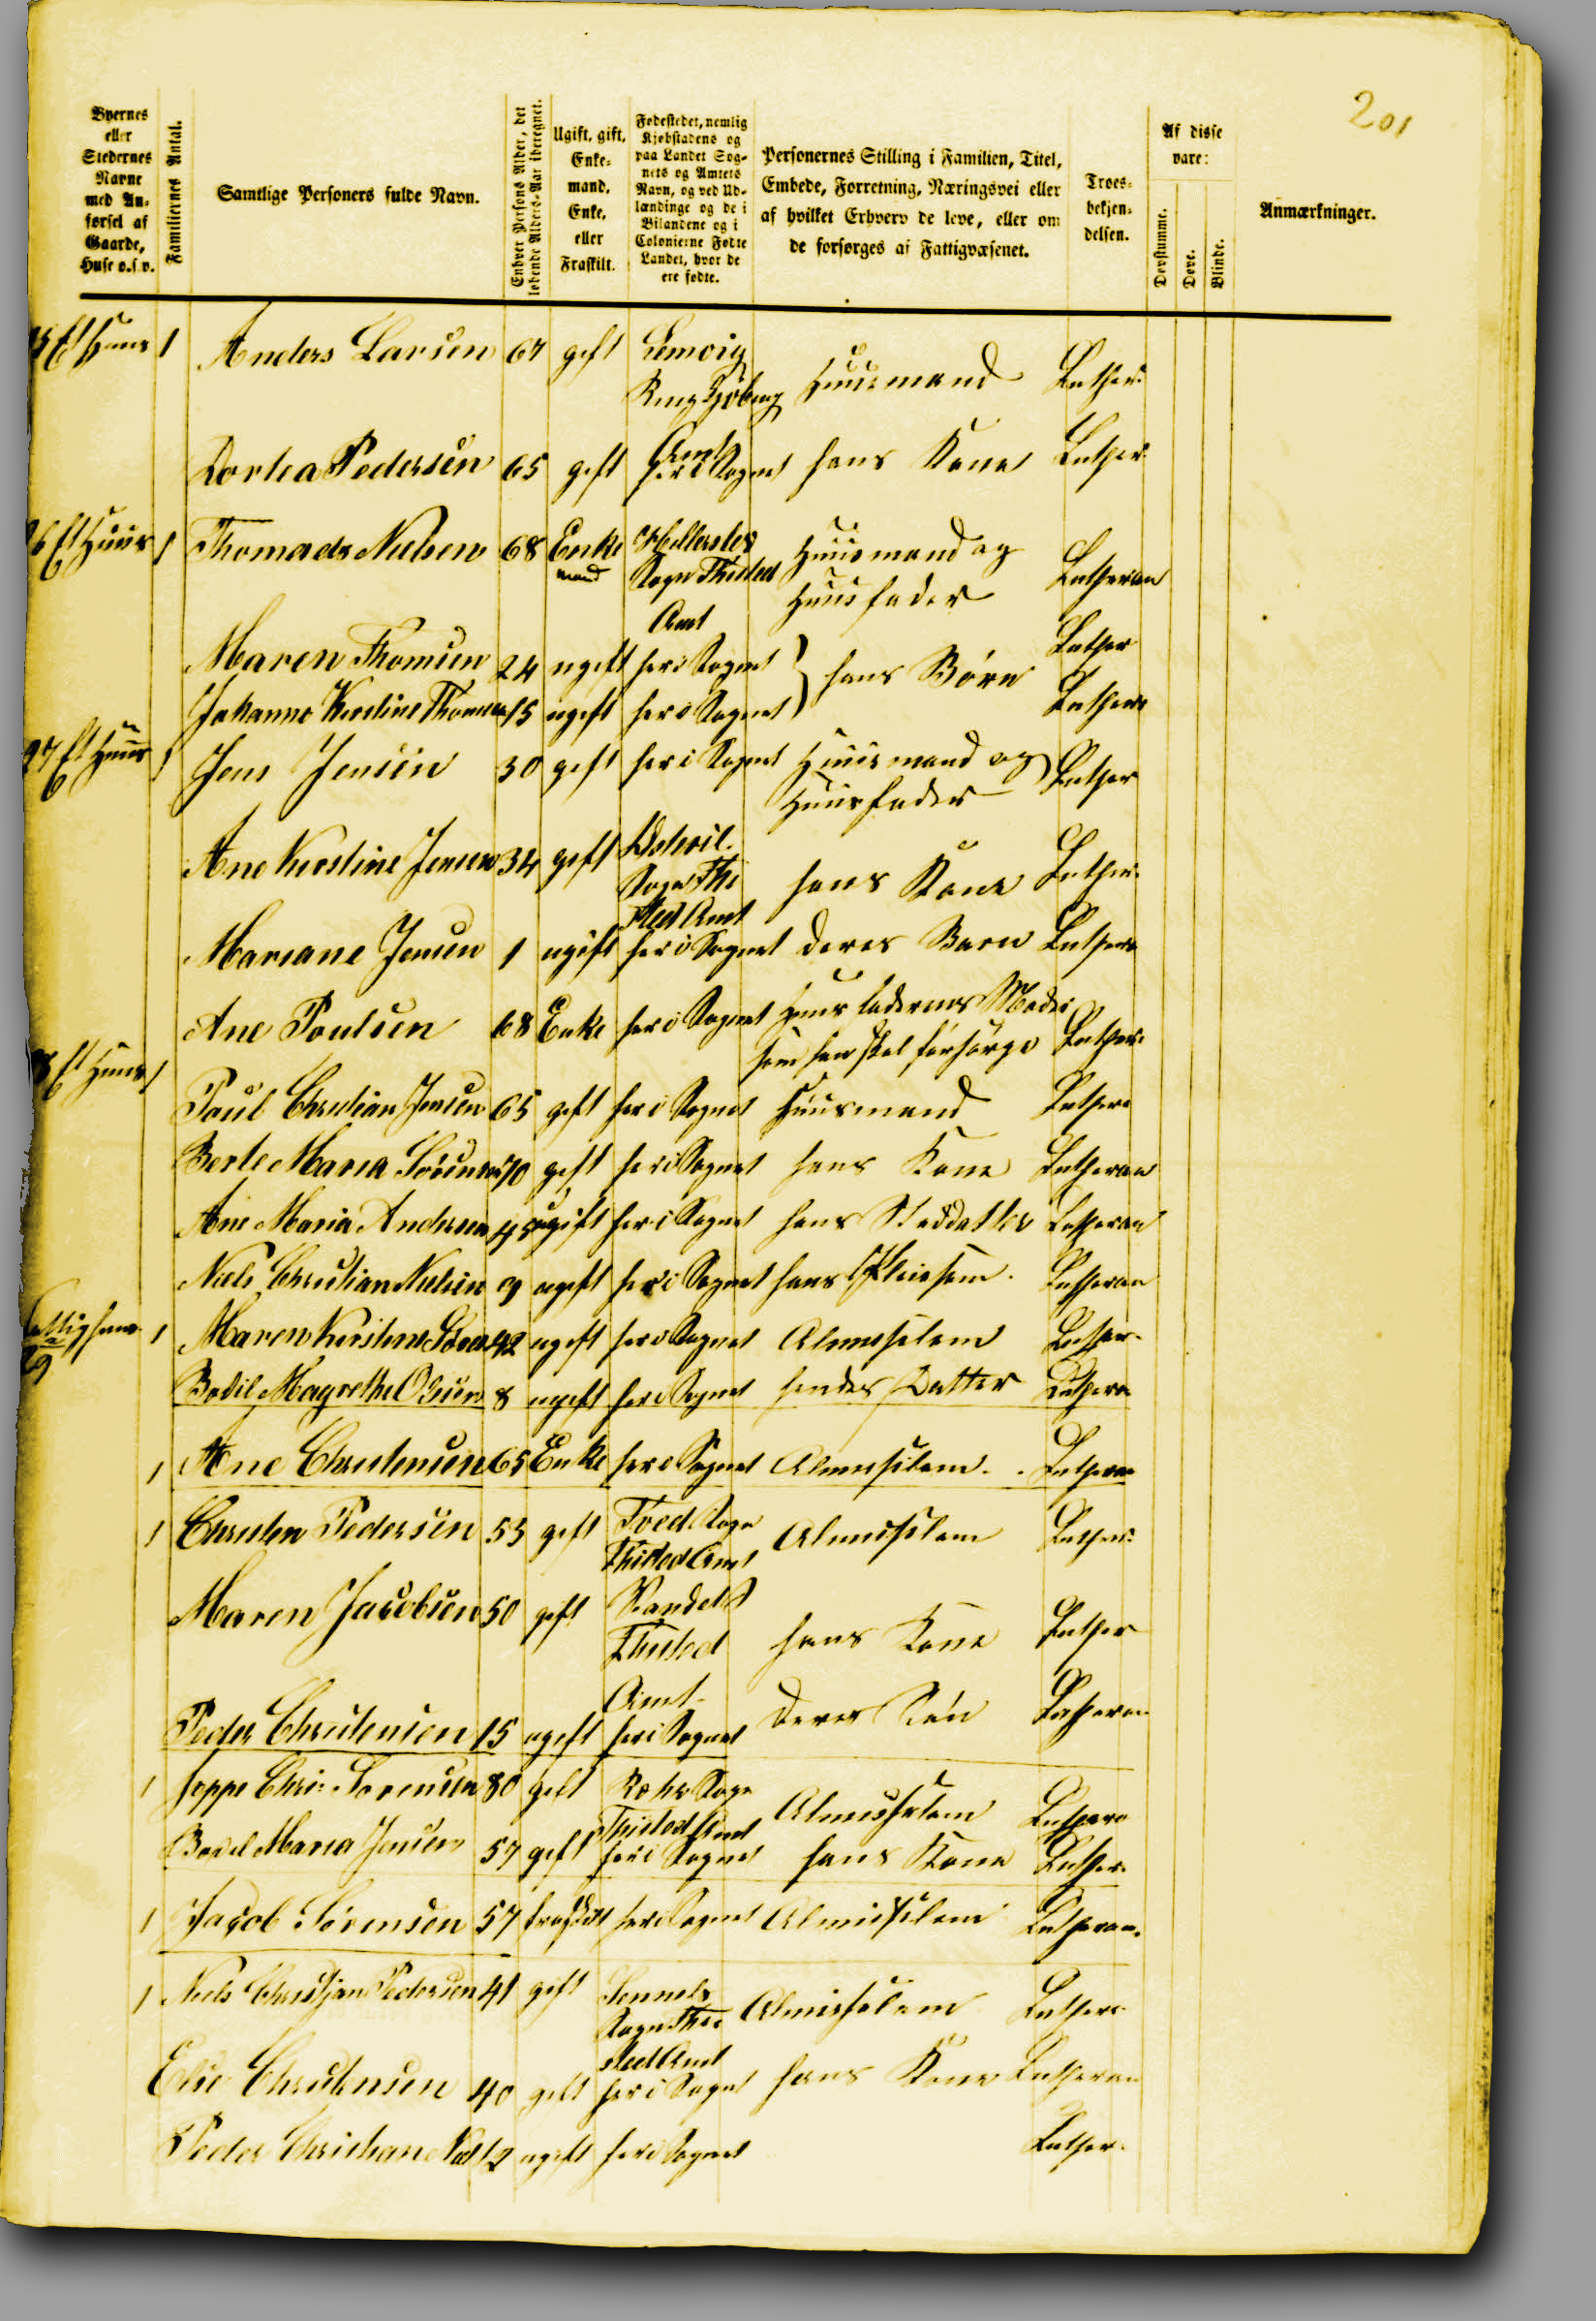 201
Byernes eller Stedernes Navne med Anførsel af Gaarde, Huse o.s.v.
Familiernes Antal.
Samtlige Personers fulde Navn.
Enhver Persons Alder, det løbende Alders-Aar iberegnet.
Ugift, gift, Enkemand, Enke, eller Fraskilt.
Fødestedet, nemlig Kjøbstadens og paa Landet Sognets og Amtets Navn, og ved Udlændinge og de i Bilandene og i Colonierne Fødte Landet, hvor de ere fødte.
Personernes Stilling i Familien, Titel, Embede, Forretning, Næringsvei eller af hvilket Erhverv de leve, eller om de forsørges af Fattigvæsenet.
Troesbekjendelsen.
Af disse vare:
Døvstumme.
Døve.
Blinde.
Anmærkninger.
Et Huus 1 Anders Larsen 67 gift Lemvig Huusmand Luther.
Ringkjøbing
Amt
Dortea Pedersen 65 gift her i Sognet hans Kone Luther.
Et Huus 1 Thomads Nielsen 68 Enke Huusmand og Lutheran
mand Sogn Thisted Huusfader
Amt
Maren Thomsen 24 ugift her i Sognet } hans Børn Luther
Johanne Kirstine Thomsen 15 ugift her i Sognet Luthera
27 Et Huus 1 Jens Jensen 30 gift her i Sognet Huusmand og Luther
Huusfader
Ane Kirstine Jensen 34 gift Østervil. hans Kone Luther.
Sogn Thi
sted Amt
Mariane Jensen 1 ugift her i Sognet deres Barn Luthera
Ane Poulsen 68 Enke her i Sognet Huusfaderens Moder Luther.
som han skal forsørge
Et Huus 1
Poul Christian Jensen 65 gift her i Sognet Huusmand Luthera
Berte Maria Sørensen 70 gift her i Sognet hans Kone Lutheran
Ane Maria Andersen 45 ugift her i Sognet hans Steddatter Lutheran
Niels Christian Nielsen 9 ugift her i Sognet hans Pleiesøn. Lutheran
Fattighuus 1 Maren Kirstine 42 ugift her i Sognet Almisselem Luther.
29
Bodil Magrethe Olsen 8 ugift her i Sognet hendes Datter Luthera
1 Ane Christensen 65 Enke her i Sognet Almisselem. Luthera
1 Christen Pedersen 53 gift Tved Sogn Almisselem Luther.
Thisted Amt
Maren Jacobsen 50 gift Vandet S hans Kone Luther
Thisted
Amt
Peder Christensen 15 ugift her i Sognet deres Søn Lutheran
1 Jeppe Chri. Sørensen 80 gift Ræhr Sogn Almisselem Luthera
Thisted Amt
Bodil Maria Jensen 57 gift her i Sognet hans Kone Luther.
1 Jacob Sørensen 57 fraskilt her i Sognet Almisselem Lutheran.
1 Niels Christjan Pedersen 41 gift Sennels Almisselem Luther.
Sogn Thi
sted Amt
Else Christensen 40 gift her i Sognet hans Kone Lutheran
Peder Christian 12 ugift her i Sognet Luther.